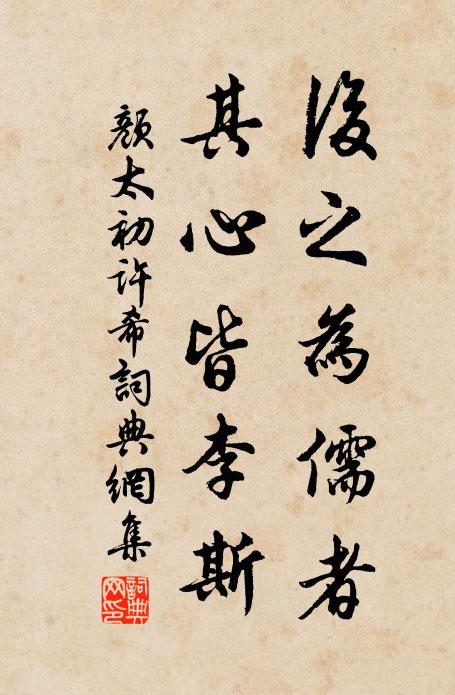 後之為儒者
其心皆李斯
顏太初許希詞典網集
詞典
网印